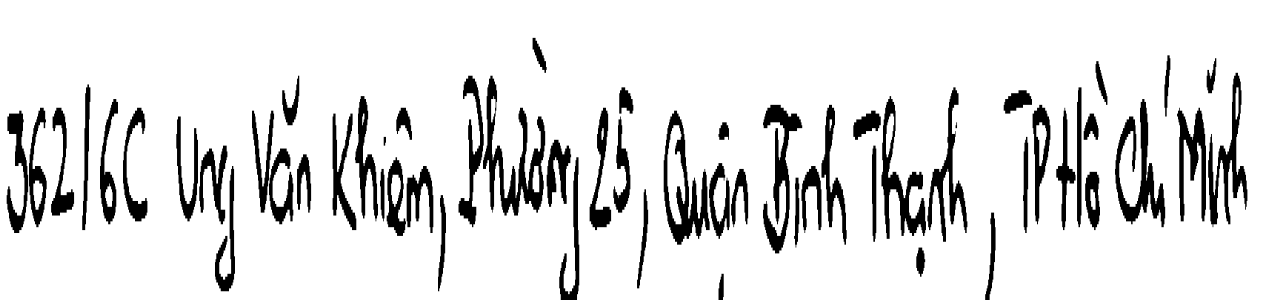 362/6C Ung Văn Khiêm, Phường 25, Quận Bình Thạnh, TP Hồ Chí Minh